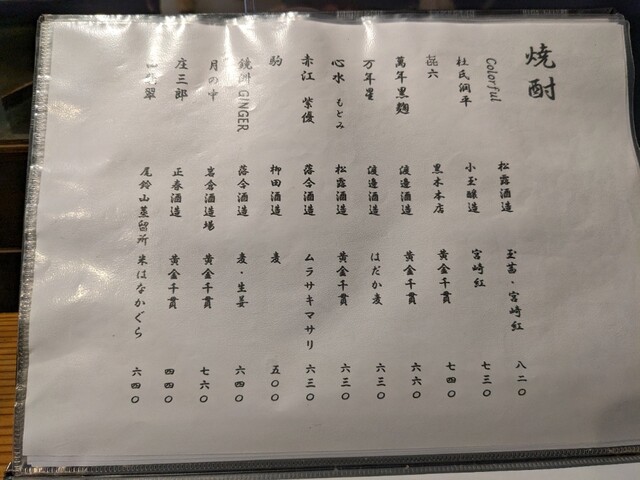 焼酎
Colorful 松露酒造 玉茜・宮崎紅 八二〇
杜氏潤平 小玉醸造 宮崎紅 七三〇
㐂六 黒木本店 黄金千貫 七四〇
萬年黒麹 渡邊酒造 黄金千貫 六六〇
万年星 渡邊酒造 はだか麦 六三〇
心水 もとみ 松露酒造 黄金千貫 六三〇
赤江 紫優 落合酒造 ムラサキマサリ 六三〇
駒 柳田酒造 麦 五〇〇
鏡洲 GINGER 落合酒造 麦・生姜 六四〇
月の中 岩倉酒造場 黄金千貫 七六〇
庄三郎 正春酒造 黄金千貫 四四〇
山翡翠 尾鈴山蒸留所 米はなかぐら 六四〇